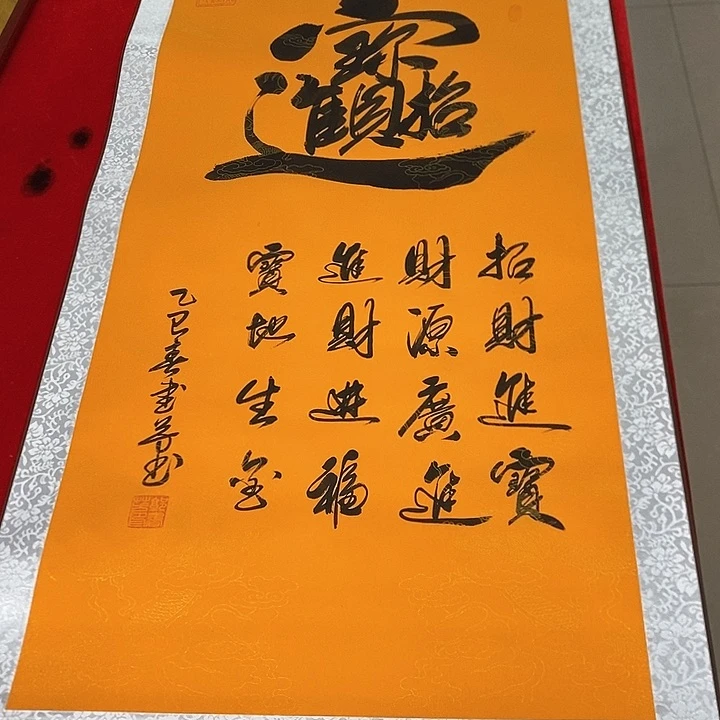 招財進寶
招財進寶
財源廣進
進財進福
寶地生金
乙巳春書